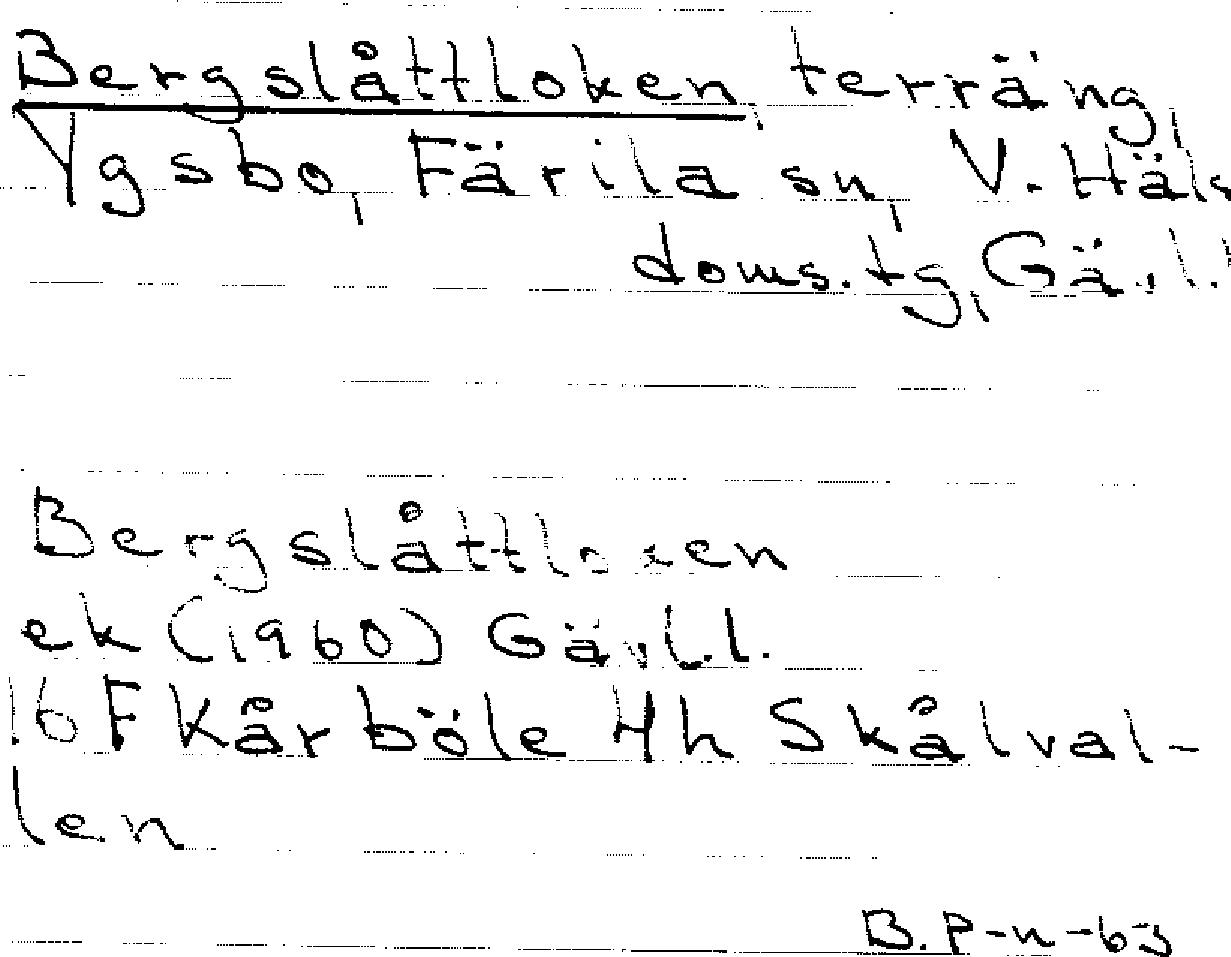 Bergslåttloken terräng,
Ygsbo, Färila sn, V. Häls
doms.tg, Gäv.l.
Bergslåttloken
ek (1960) Gäv.l.
16 F Kårböle 4h Skålval-
len
B. P-n -63